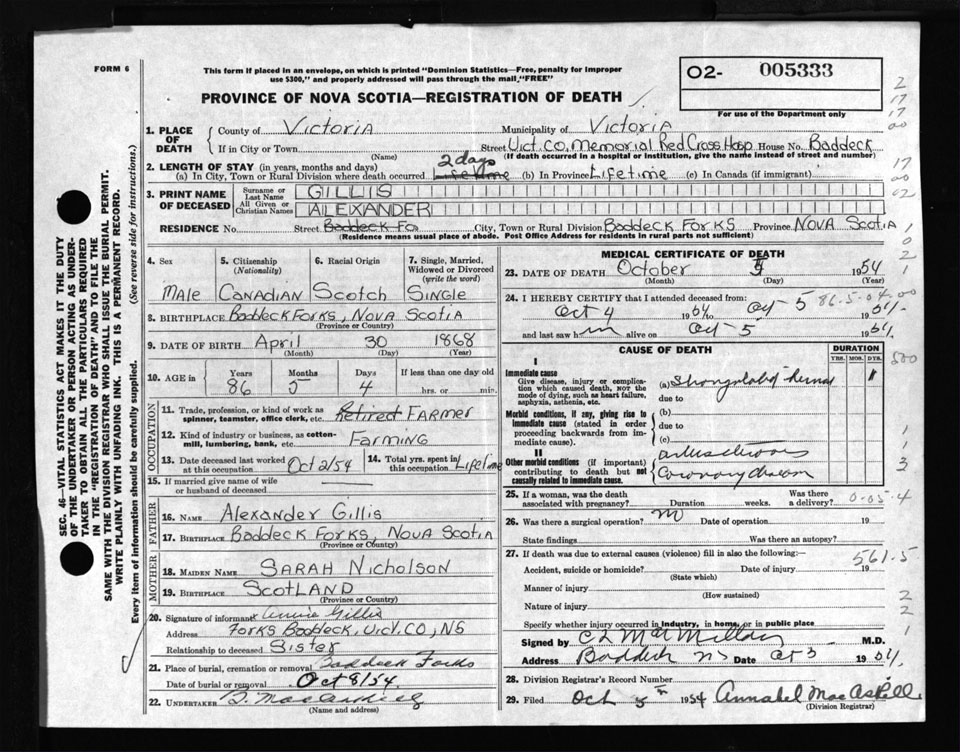 FORM 6
This form if placed in an envelope, on which is printed "Dominion Statistics—Free, penalty for improper
use $300," and properly addressed will pass through the mail, "FREE"
PROVINCE OF NOVA SCOTIA—REGISTRATION OF DEATH
O2- 005333
For use of the Department only
SEC. 46—VITAL STATISTICS ACT MAKES IT THE DUTY
OF THE UNDERTAKER OR PERSON ACTING AS UNDER-
TAKER TO OBTAIN ALL THE PARTICULARS REQUIRED
IN THE "REGISTRATION OF DEATH" AND TO FILE THE
SAME WITH THE DIVISION REGISTRAR WHO SHALL ISSUE THE BURIAL PERMIT.
WRITE PLAINLY WITH UNFADING INK. THIS IS A PERMANENT RECORD.
Every item of information should be carefully supplied. (See reverse side for instructions.)
1. PLACE OF DEATH
County of Victoria Municipality of Victoria
If in City or Town (Name) Street Vict. Co. Memorial Red Cross Hosp. House No. Baddeck
(If death occurred in a hospital or institution, give the name instead of street and number)
2. LENGTH OF STAY (in years, months and days)
2 days
(a) In City, Town or Rural Division where death occurred Lifetime (b) In Province Lifetime (c) In Canada (if immigrant)
3. PRINT NAME OF DECEASED
Surname or Last Name GILLIS
All Given or Christian Names ALEXANDER
RESIDENCE No. Street Baddeck Fo City, Town or Rural Division Baddeck Forks Province Nova Scotia
(Residence means usual place of abode. Post Office Address for residents in rural parts not sufficient)
4. Sex
Male
5. Citizenship (Nationality)
Canadian
6. Racial Origin
Scotch
7. Single, Married, Widowed or Divorced (write the word)
Single
8. BIRTHPLACE Baddeck Forks, Nova Scotia
(Province or Country)
9. DATE OF BIRTH April 30 1868
(Month) (Day) (Year)
10. AGE in Years Months Days If less than one day old
86 5 4 hrs. or min.
OCCUPATION
11. Trade, profession, or kind of work as spinner, teamster, office clerk, etc. Retired Farmer
12. Kind of industry or business, as cotton-mill, lumbering, bank, etc. Farming
13. Date deceased last worked at this occupation Oct 2/54 14. Total yrs. spent in this occupation Lifetime
15. If married give name of wife or husband of deceased
FATHER
16. NAME Alexander Gillis
17. BIRTHPLACE Baddeck Forks, Nova Scotia
(Province or Country)
MOTHER
18. MAIDEN NAME Sarah Nicholson
19. BIRTHPLACE Scotland
(Province or Country)
20. Signature of informant Annie Gillis
Address Forks Baddeck, Vict. Co, NS
Relationship to deceased Sister
21. Place of burial, cremation or removal Baddeck Forks
Date of burial or removal Oct 8/54
22. UNDERTAKER
(Name and address)
MEDICAL CERTIFICATE OF DEATH
23. DATE OF DEATH October 5 1954
(Month) (Day)
24. I HEREBY CERTIFY that I attended deceased from:
Oct 4 1954 Oct 5 1954
86-5-04.00
and last saw h im alive on Oct 5 1954
CAUSE OF DEATH
DURATION
YRS. MOS. DYS.
I
Immediate cause
Give disease, injury or complication which caused death, NOT the mode of dying, such as heart failure, asphyxia, asthenia, etc.
(a) Strangulated hernia 1
due to
Morbid conditions, if any, giving rise to immediate cause (stated in order proceeding backwards from immediate cause).
(b)
due to
(c)
II
Other morbid conditions (if important) contributing to death but not causally related to immediate cause.
Coronary disease
25. If a woman, was the death associated with pregnancy? Duration weeks. Was there a delivery?
0-05-4
26. Was there a surgical operation? no Date of operation 19
State findings Was there an autopsy?
27. If death was due to external causes (violence) fill in also the following:—
561.5
Accident, suicide or homicide? Date of injury 19
(State which)
Manner of injury
(How sustained)
Nature of injury
Specify whether injury occurred in industry, in home, or in public place
Signed by C L MacMillan M.D.
Address Baddeck NS Date Oct 5 1954
28. Division Registrar's Record Number
29. Filed Oct 5th 1954 Annabel MacAskill
(Division Registrar)